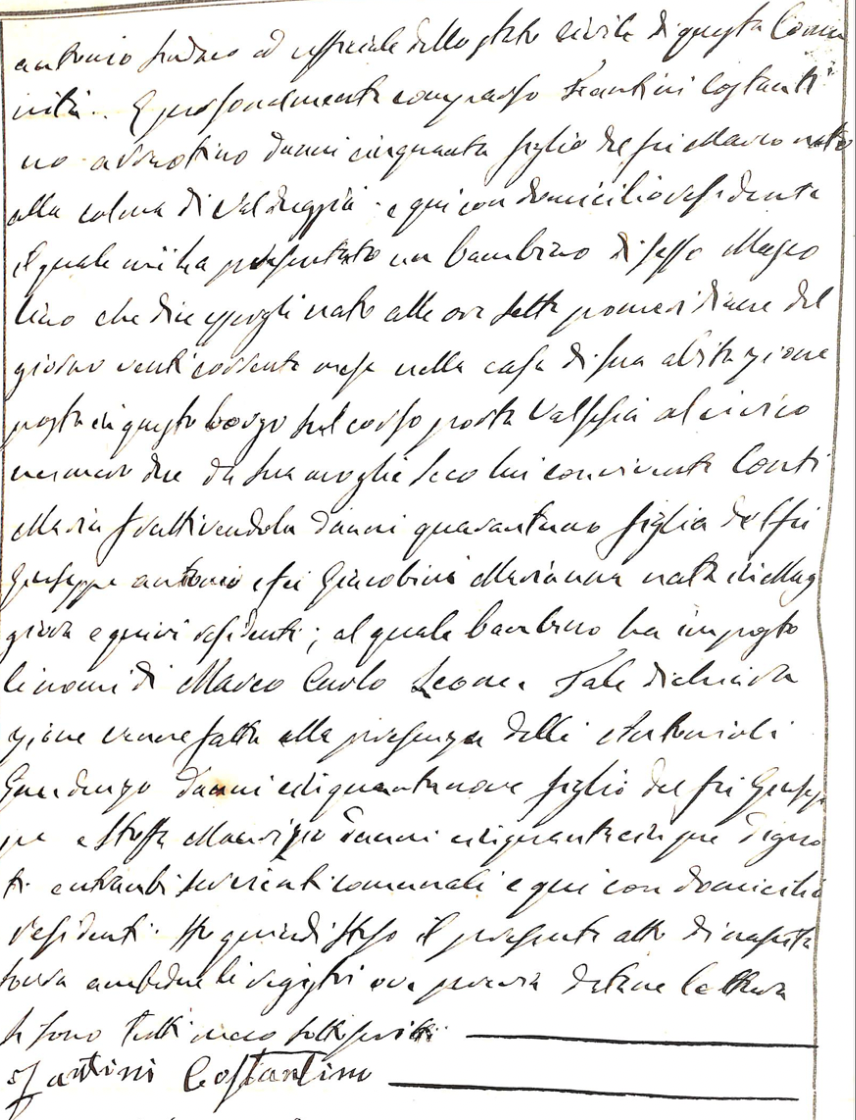 antonio sindaco ed ufficiale dello stato civile di questa Comu
nità. È personalmente comparso Fantini Costanti
no d'anni cinquanta figlio del fu Marco nato
alla colma di Valduggia e qui con domicilio residente
il quale mi ha presentato un bambino di sesso Masco
lino che dice essergli nato alle ore sette pomeridiane del
giorno venti corrente mese nella casa di sua abitazione
posta in questo borgo sul corso porta Valsesia al civico
numero due da sua moglie seco lui convivente Conti
Maria fruttivendola d'anni quarantuno figlia del fu
Giuseppe antonio e fu Giacobini Marianna nata in Mag
giora e quivi residenti; al quale bambino ha imposto
li nomi di Marco Carlo Leone. Tale dichiara
zione venne fatta alla presenza delli Antonioli
Gaudenzo d'anni cinquantanove figlio del fu Giusep
pe e Stoffa Maurizio d'anni cinquantacinque d'igno
ti entrambi servienti comunali e qui con domicilio
residenti. Ho quindi steso il presente atto di nascita
sovra ambedue li registri ove previa dettane lettura
si sono tutti meco sottoscritti
Fantini Costantino